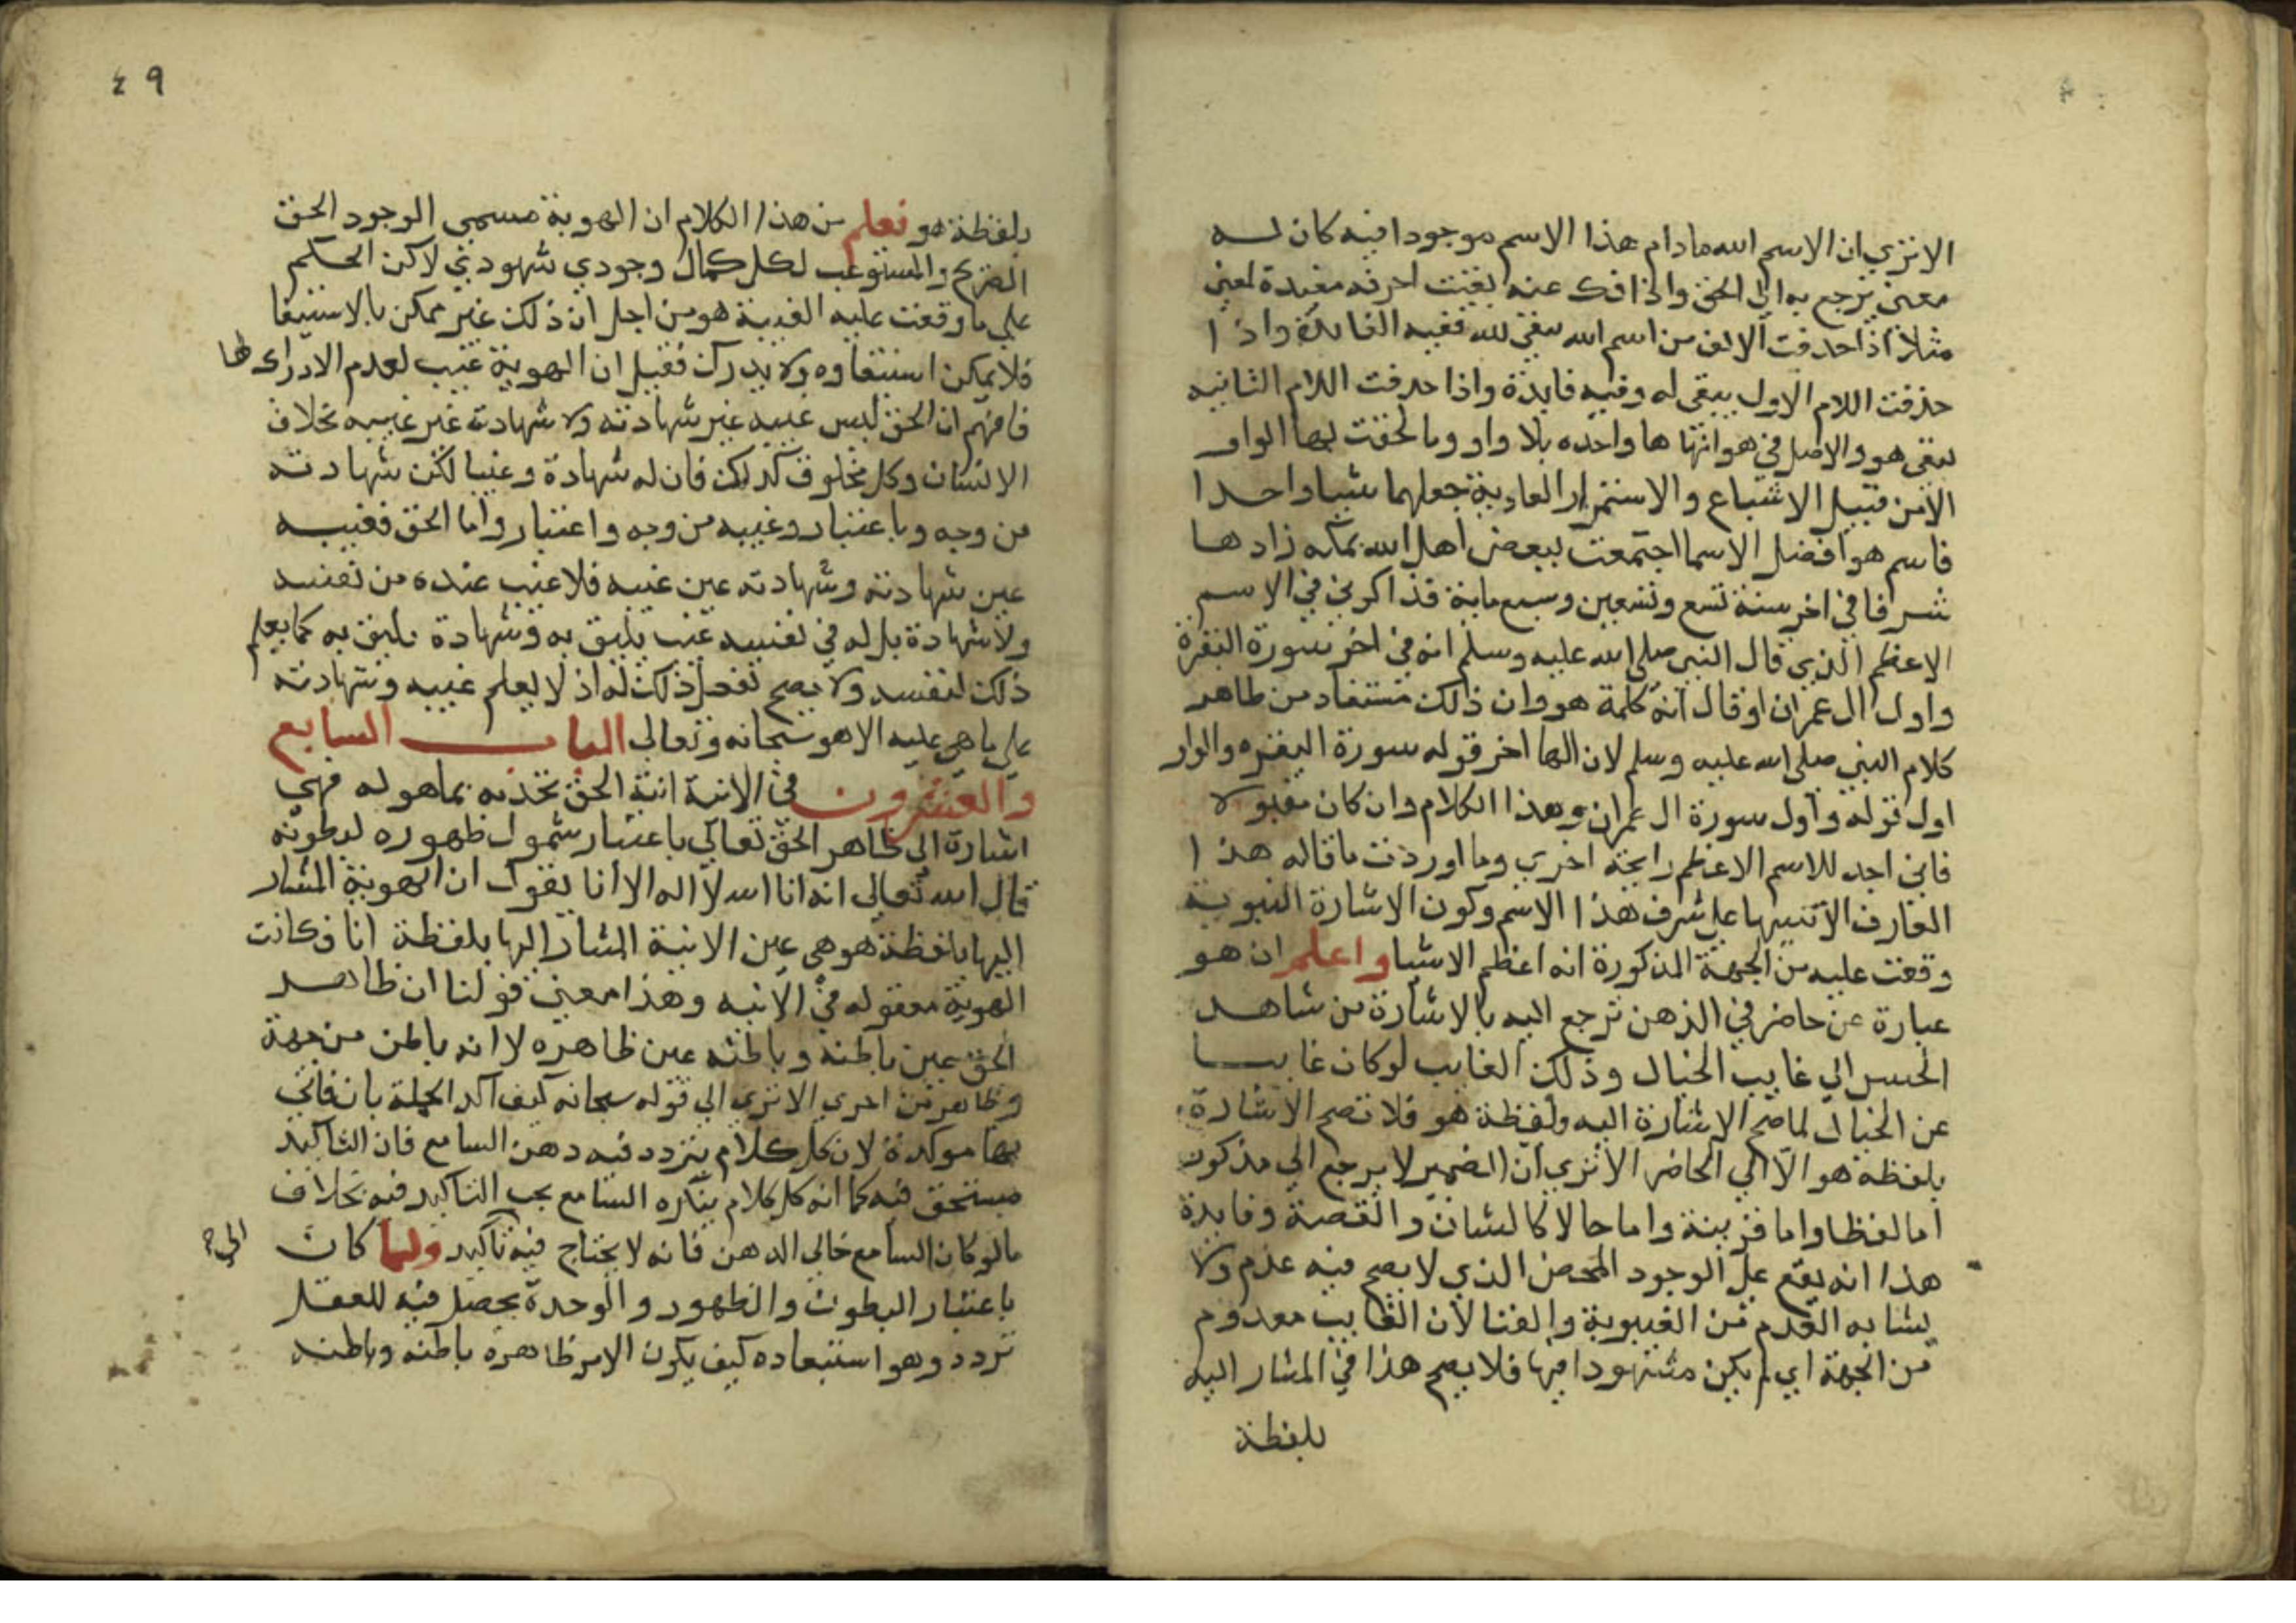 الا تري ان الاسم الله مادام هذا الاسم موجودا فيه كان له
معني يرجع به الي الحق واذا فك عنه بقيت احرفه مفيدة لمعني
مثلا اذا حذفت الالف من اسم الله يبقي لله ففيه الفايدة واذا
حذفت اللام الاول يبقي له وفيه فايدة واذا حذفت اللام الثانيه
يبقي هو والاصل في هو انها ها واحده بلا واو وما لحقت بها الواو
الا من قبيل الاشباع والاستمرار العادية جعلهما شيا واحدا
فاسم هو افضل الاسما اجتمعت ببعض اهل الله بمكه زادها
شرفا في اخر سنة تسع وتسعين وسبع ماية فذاكرني في الاسم
الاعظم الذي قال النبي صلي الله عليه وسلم انه في اخر سورة البقرة
واول ال عمران اوقال انه كلمة هو وان ذلك مستفاد من ظاهر
كلام النبي صلي الله عليه وسلم لان الها اخر قوله سورة البقره والواو
اول قوله واول سورة ال عمران وهذا الكلام وان كان مقبولا
فاني اجد للاسم الاعظم رايحة اخري وما اوردت ما قاله هذا
العارف الا تنبيها علي شرف هذا الاسم وكون الاشارة النبوية
وقعت عليه من الجهة المذكورة انه اعظم الاشيا واعلم ان هو
عبارة عن حاضر في الذهن ترجع اليه بالاشارة من شاهد
الحس الي غايب الخيال وذلك الغايب لو كان غايبا
عن الخيال لما صح الاشارة اليه ولفظة هو فلا تصح الاشارة
بلفظة هو الا الي الحاضر الا تري ان الضمير لا يرجع الي مذكور
اما لفظا واما قرينة واما حالا كالشان والقصة وفايدة
هذا انه يقع علي الوجود المحض الذي لا يصح فيه عدم ولا
يشابه العدم من الغيبوبة والفنا لان الغايب معدوم
من الجهة اي لم يكن مشهودا فيها فلا يصح هذا في المشار اليه
بلفظة
٤٩
بلفظة هو فعلم من هذا الكلام ان الهوية مسمي الوجود الحق
الصريح والمستوعب لكل كمال وجودي شهودي لاكن الحكم
علي ما وقعت عليه الغيبة هو من اجل ان ذلك غير ممكن بالاستيفا
فلا يمكن استيفاوه ولا يدرك فقيل ان الهوية غيب لعدم الادراك لها
فافهم ان الحق ليس غيبه غير شهادته ولا شهادته غير غيبه بخلاف
الانسان وكل مخلوق كذلك فان له شهادة وغيبا لكن شهادته
من وجه وباعتبار وغيبه من وجه واعتبار واما الحق فغيبه
عين شهادته وشهادته عين غيبه فلا غيب عنده من نفسه
ولا شهادة بل له في نفسه غيب يليق به وشهادة تليق به كما يعلم
ذلك لنفسه ولا يصح تعقل ذلك له اذ لا يعلم غيبه وشهادته
علي ما هي عليه الا هو سبحانه وتعالي الباب السابع
والعشرون في الانية انية الحق تحديه بما هو له فهي
اشارة الي ظاهر الحق تعالي باعتبار شمول ظهوره لبطونه
قال الله تعالي انه انا الله لا اله الا انا يقول ان الهوية المشار
اليها بلفظة هو هي عين الانية المشار اليها بلفظة انا فكانت
الهوية معقوله في الانيه وهذا معني قولنا ان ظاهر
الحق عين باطنه وباطنه عين ظاهره لا انه باطن من جهة
وظاهر من اخري الا تري الي قوله سبحانه كيف اكد الجملة بان فاتي
بها موكدة لان كل كلام يتردد فيه دهن السامع فان التاكيد
مستحق فيه كما انه كل كلام ينكره السامع يجب التاكيد فيه بخلاف
ما لو كان السامع خالي الدهن فانه لا يحتاج فيه تاكيد ولما كان
الي
باعتبار البطون والظهور والوحدة يحصل فيه للعقل
تردد وهو استبعاده كيف يكون الامر ظاهره باطنه وباطنه